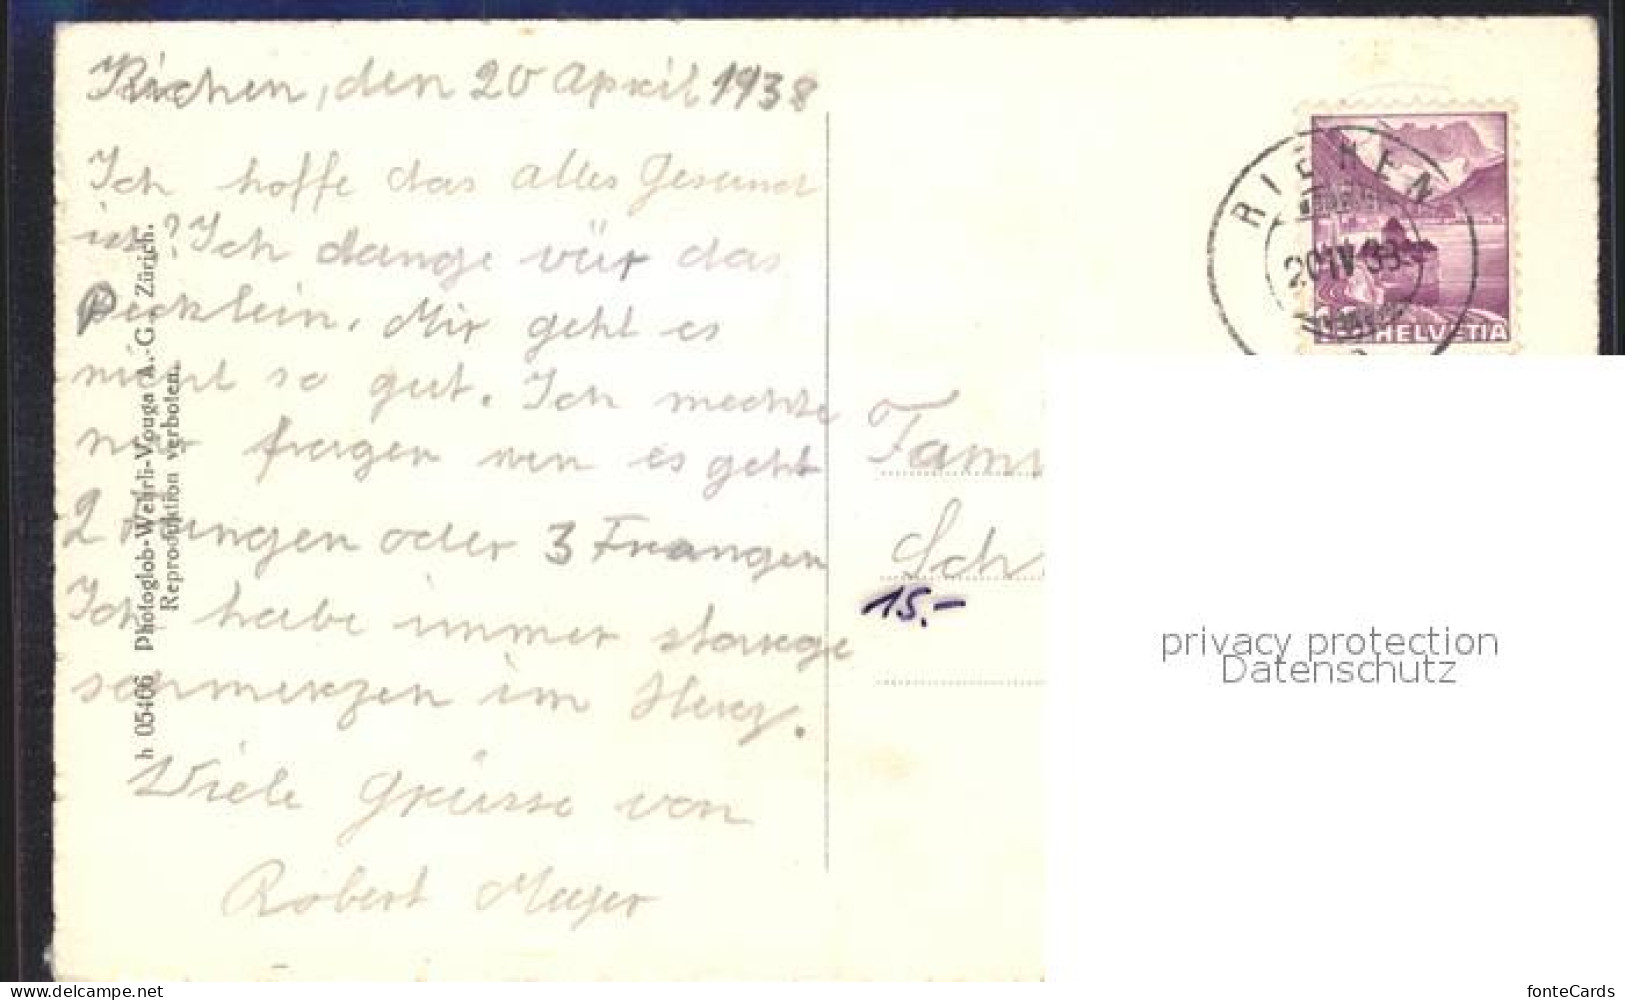 Riehen, den 20 April 1938
Ich hoffe das alles Gesund
ist? Ich dange vür das
Pecklein. Mir gehl es
nicht so gut. Ich mechte
nur fragen wen es geht
2 oder 3 Frangen
Ich habe immer starge
schmerzen im Herz.
Viele Grüsse von
Robert Meyer
h 05406 Photoglob-Wehrli-Vouga A.-G. Zürich.
Reproduktion verboten.
RIEHEN
20 IV 38
HELVETIA
Fam
Sch
15.-
privacy protection
Datenschutz
www.delcampe.net
fonteCards